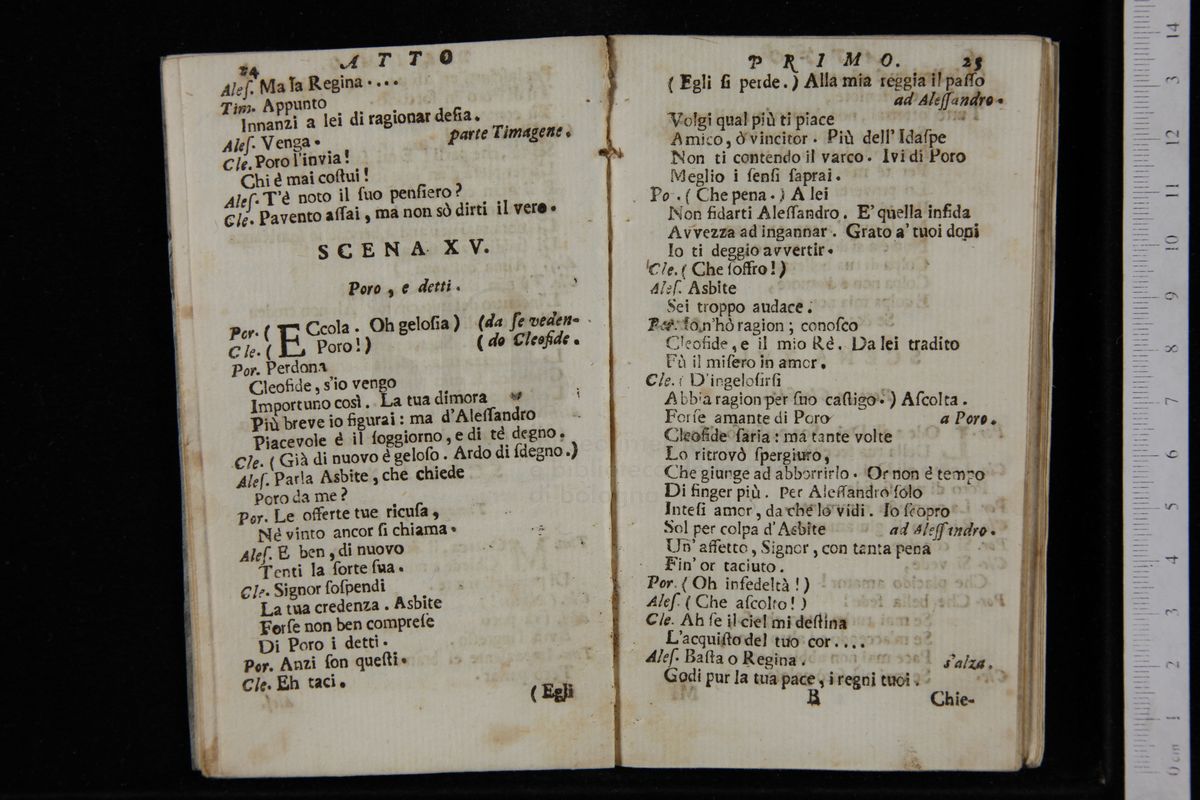 24 ATTO
Aleſ. Ma la Regina ....
Tim. Appunto
Innanzi a lei di ragionar deſia.
Aleſ. Venga. parte Timagene.
Cle. Poro l'invia!
Chi è mai coſtui!
Aleſ. T'è noto il ſuo penſiero?
Cle. Pavento aſſai, ma non sò dirti il vero.
SCENA XV.
Poro, e detti.
Por. ( ECcola. Oh geloſia) (da ſe veden-
Cle. ( Poro!) (do Cleofide.
Por. Perdona
Cleofide, s'io vengo
Importuno così. La tua dimora
Più breve io figurai: ma d'Aleſſandro
Piacevole è il ſoggiorno, e di tè degno.
Cle. (Già di nuovo è geloſo. Ardo di ſdegno.)
Aleſ. Parla Asbite, che chiede
Poro da me?
Por. Le offerte tue ricuſa,
Nè vinto ancor ſi chiama.
Aleſ. E ben, di nuovo
Tenti la ſorte ſua.
Cle. Signor ſoſpendi
La tua credenza. Asbite
Forſe non ben compreſe
Di Poro i detti.
Por. Anzi ſon queſti.
Cle. Eh taci.
(Egli
PRIMO. 25
(Egli ſi perde.) Alla mia reggia il paſſo
ad Aleſſandro.
Volgi qual più ti piace
Amico, ò vincitor. Più dell'Idaſpe
Non ti contendo il varco. Ivi di Poro
Meglio i ſenſi ſaprai.
Po. (Che pena.) A lei
Non fidarti Aleſſandro. E' quella infida
Avvezza ad ingannar. Grato a' tuoi doni
Io ti deggio avvertir.
Cle. (Che ſoffro!)
Aleſ. Asbite
Sei troppo audace.
Por. Io n'hò ragion; conoſco
Cleofide, e il mio Rè. Da lei tradito
Fù il miſero in amor.
Cle. ( D'ingeloſirſi
Abbia ragion per ſuo caſtigo.) Aſcolta.
Forſe amante di Poro a Poro.
Cleofide ſaria: ma tante volte
Lo ritrovò ſpergiuro,
Che giunge ad abborrirlo. Or non è tempo
Di finger più. Per Aleſſandro ſolo
Inteſi amor, da che lo vidi. Io ſcopro
Sol per colpa d'Asbite ad Aleſſandro.
Un' affetto, Signor, con tanta pena
Fin' or taciuto.
Por. (Oh infedeltà!)
Aleſ. (Che aſcolto!)
Cle. Ah ſe il ciel mi deſtina
L'acquiſto del tuo cor....
Aleſ. Baſta o Regina. s'alza.
Godi pur la tua pace, i regni tuoi.
B Chie-